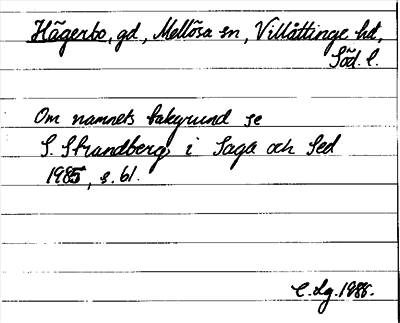 Hägerbo, gd, Mellösa sn, Villåttinge hd,
Söd. l.
Om namnets bakgrund se
S. Strandberg i Saga och Sed
1985, s. 61.